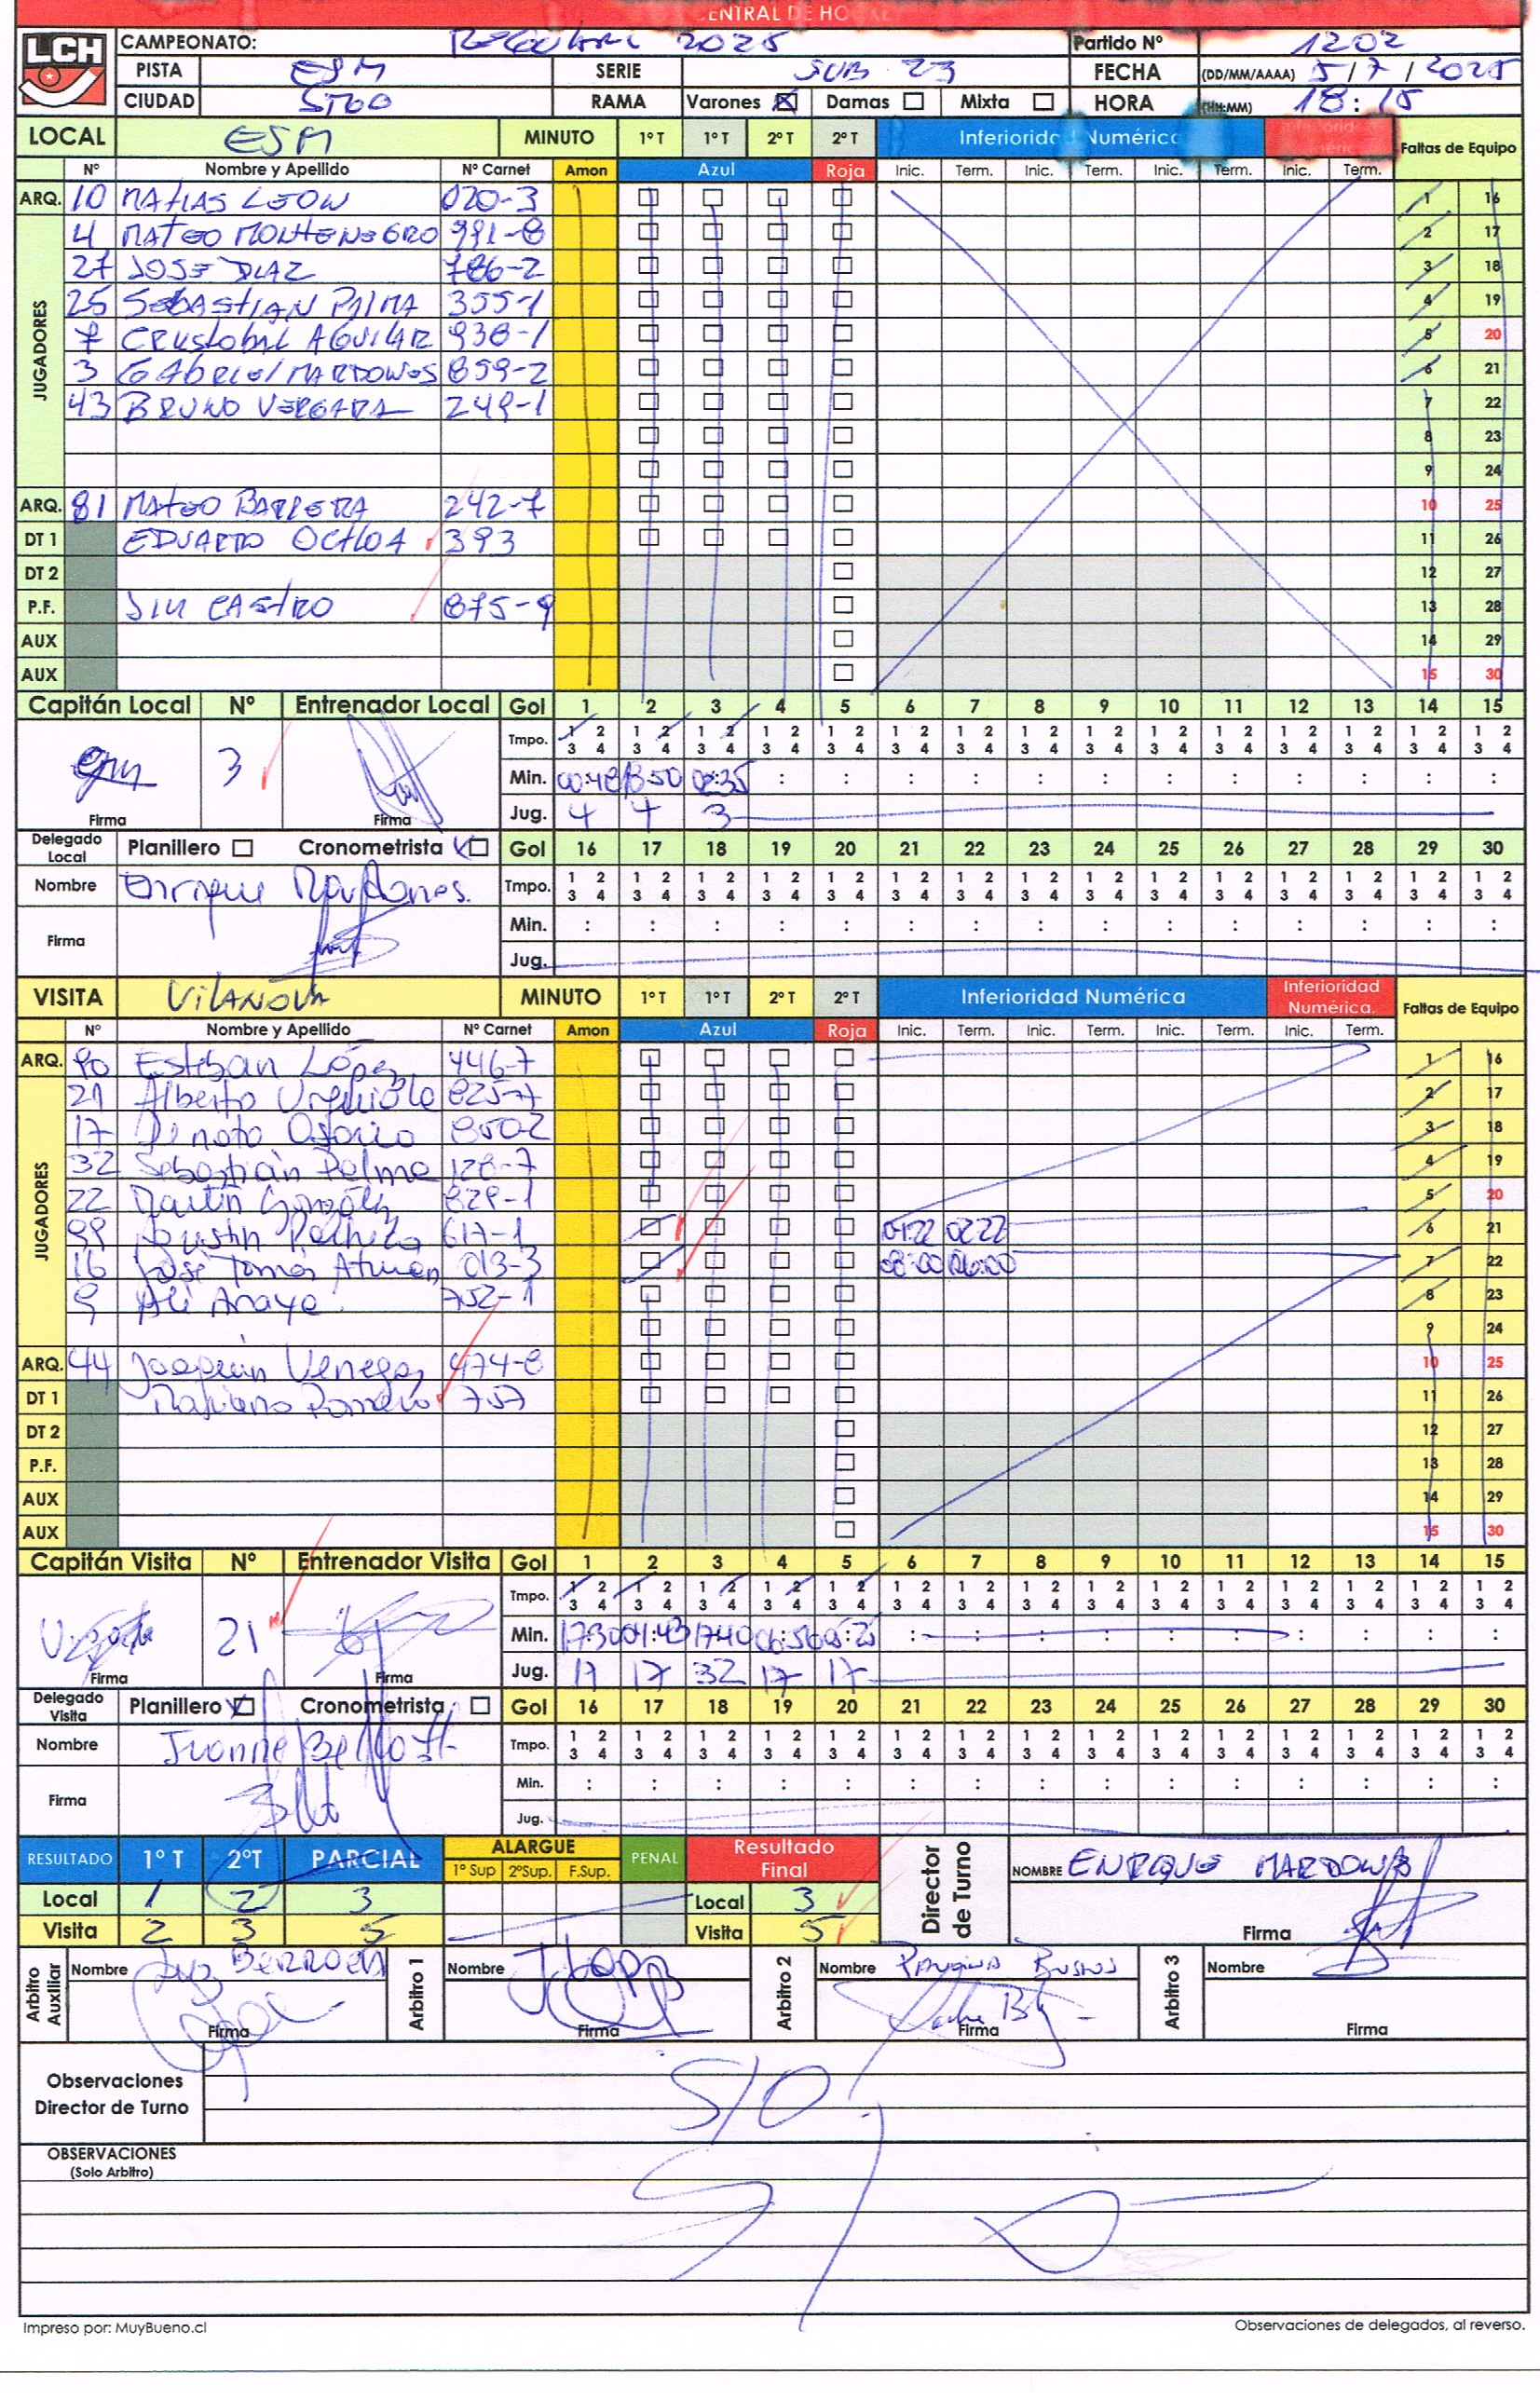 CENTRAL DE HOCKEY
LCH CAMPEONATO: REGULAR 2025 Partido Nº 1202
PISTA ESM SERIE SUB 23 FECHA (DD/MM/AAAA) 5/7/2025
CIUDAD STGO RAMA Varones Damas Mixta HORA (HH:MM) 18:15
LOCAL ESM MINUTO 1º T 1º T 2º T 2º T Inferioridad Numérica Inferioridad Numérica Faltas de Equipo
Nº Nombre y Apellido Nº Carnet Amon Azul Roja Inic. Term. Inic. Term. Inic. Term. Inic. Term.
ARQ. 10 MATIAS LEON 020-3 1 16
JUGADORES
4 MATEO MONTENEGRO 991-8 2 17
27 JOSE DIAZ 786-2 3 18
25 SEBASTIAN PALMA 355-1 4 19
7 CRISTOBAL AGUILAR 938-1 5 20
3 GABRIEL MARDONES 859-2 6 21
43 BRUNO VERGARA 249-1 7 22
8 23
9 24
ARQ. 81 MATEO BARRERA 242-7 10 25
DT 1 EDUARDO OCHOA 393 11 26
DT 2 12 27
P.F. JIM CASTRO 875-9 13 28
AUX 14 29
AUX 15 30
Capitán Local Nº Entrenador Local Gol 1 2 3 4 5 6 7 8 9 10 11 12 13 14 15
Tmpo. 1 2 1 2 1 2 1 2 1 2 1 2 1 2 1 2 1 2 1 2 1 2 1 2 1 2 1 2 1 2
3 4 3 4 3 4 3 4 3 4 3 4 3 4 3 4 3 4 3 4 3 4 3 4 3 4 3 4 3 4
3 Min. 00:48 13:50 02:35 : : : : : : : : : : : :
Firma Firma Jug. 4 4 3
Delegado Local Planillero Cronometrista Gol 16 17 18 19 20 21 22 23 24 25 26 27 28 29 30
Nombre Enrique Mardones. Tmpo. 1 2 1 2 1 2 1 2 1 2 1 2 1 2 1 2 1 2 1 2 1 2 1 2 1 2 1 2 1 2
3 4 3 4 3 4 3 4 3 4 3 4 3 4 3 4 3 4 3 4 3 4 3 4 3 4 3 4 3 4
Firma Min. : : : : : : : : : : : : : : :
Jug.
VISITA VILANOVA MINUTO 1º T 1º T 2º T 2º T Inferioridad Numérica Inferioridad Numérica. Faltas de Equipo
Nº Nombre y Apellido Nº Carnet Amon Azul Roja Inic. Term. Inic. Term. Inic. Term. Inic. Term.
ARQ. 90 Esteban López 446-7 1 16
JUGADORES
21 Alberto 825-7 2 17
17 Renato Osorio 850-2 3 18
32 Sebastián Palma 128-7 4 19
22 Martín González 829-1 5 20
99 Agustín 617-1 01:22 02:22 6 21
16 José Tomás 013-3 08:00 06:00 7 22
9 Ali Anaya 752-1 8 23
9 24
ARQ. 44 Joaquín Venegas 474-8 10 25
DT 1 Mariano Romero 757 11 26
DT 2 12 27
P.F. 13 28
AUX 14 29
AUX 15 30
Capitán Visita Nº Entrenador Visita Gol 1 2 3 4 5 6 7 8 9 10 11 12 13 14 15
Tmpo. 1 2 1 2 1 2 1 2 1 2 1 2 1 2 1 2 1 2 1 2 1 2 1 2 1 2 1 2 1 2
3 4 3 4 3 4 3 4 3 4 3 4 3 4 3 4 3 4 3 4 3 4 3 4 3 4 3 4 3 4
21 Min. 17:30 01:43 17:40 06:56 : : : : : : : : : : :
Firma Firma Jug. 17 17 32 17 17
Delegado Visita Planillero Cronometrista Gol 16 17 18 19 20 21 22 23 24 25 26 27 28 29 30
Nombre Ivonne Tmpo. 1 2 1 2 1 2 1 2 1 2 1 2 1 2 1 2 1 2 1 2 1 2 1 2 1 2 1 2 1 2
3 4 3 4 3 4 3 4 3 4 3 4 3 4 3 4 3 4 3 4 3 4 3 4 3 4 3 4 3 4
Firma Min. : : : : : : : : : : : : : : :
Jug.
RESULTADO 1º T 2ºT PARCIAL ALARGUE 1º Sup 2ºSup. F.Sup. PENAL Resultado Final Director de Turno NOMBRE ENRIQUE MARDONES
Local 1 2 3 Local 3
Visita 2 3 5 Visita 5 Firma
Arbitro Auxiliar Nombre Arbitro 1 Nombre Arbitro 2 Nombre Arbitro 3 Nombre
Firma Firma Firma Firma
Observaciones Director de Turno S/O
OBSERVACIONES
(Solo Arbitro)
Impreso por: MuyBueno.cl Observaciones de delegados, al reverso.